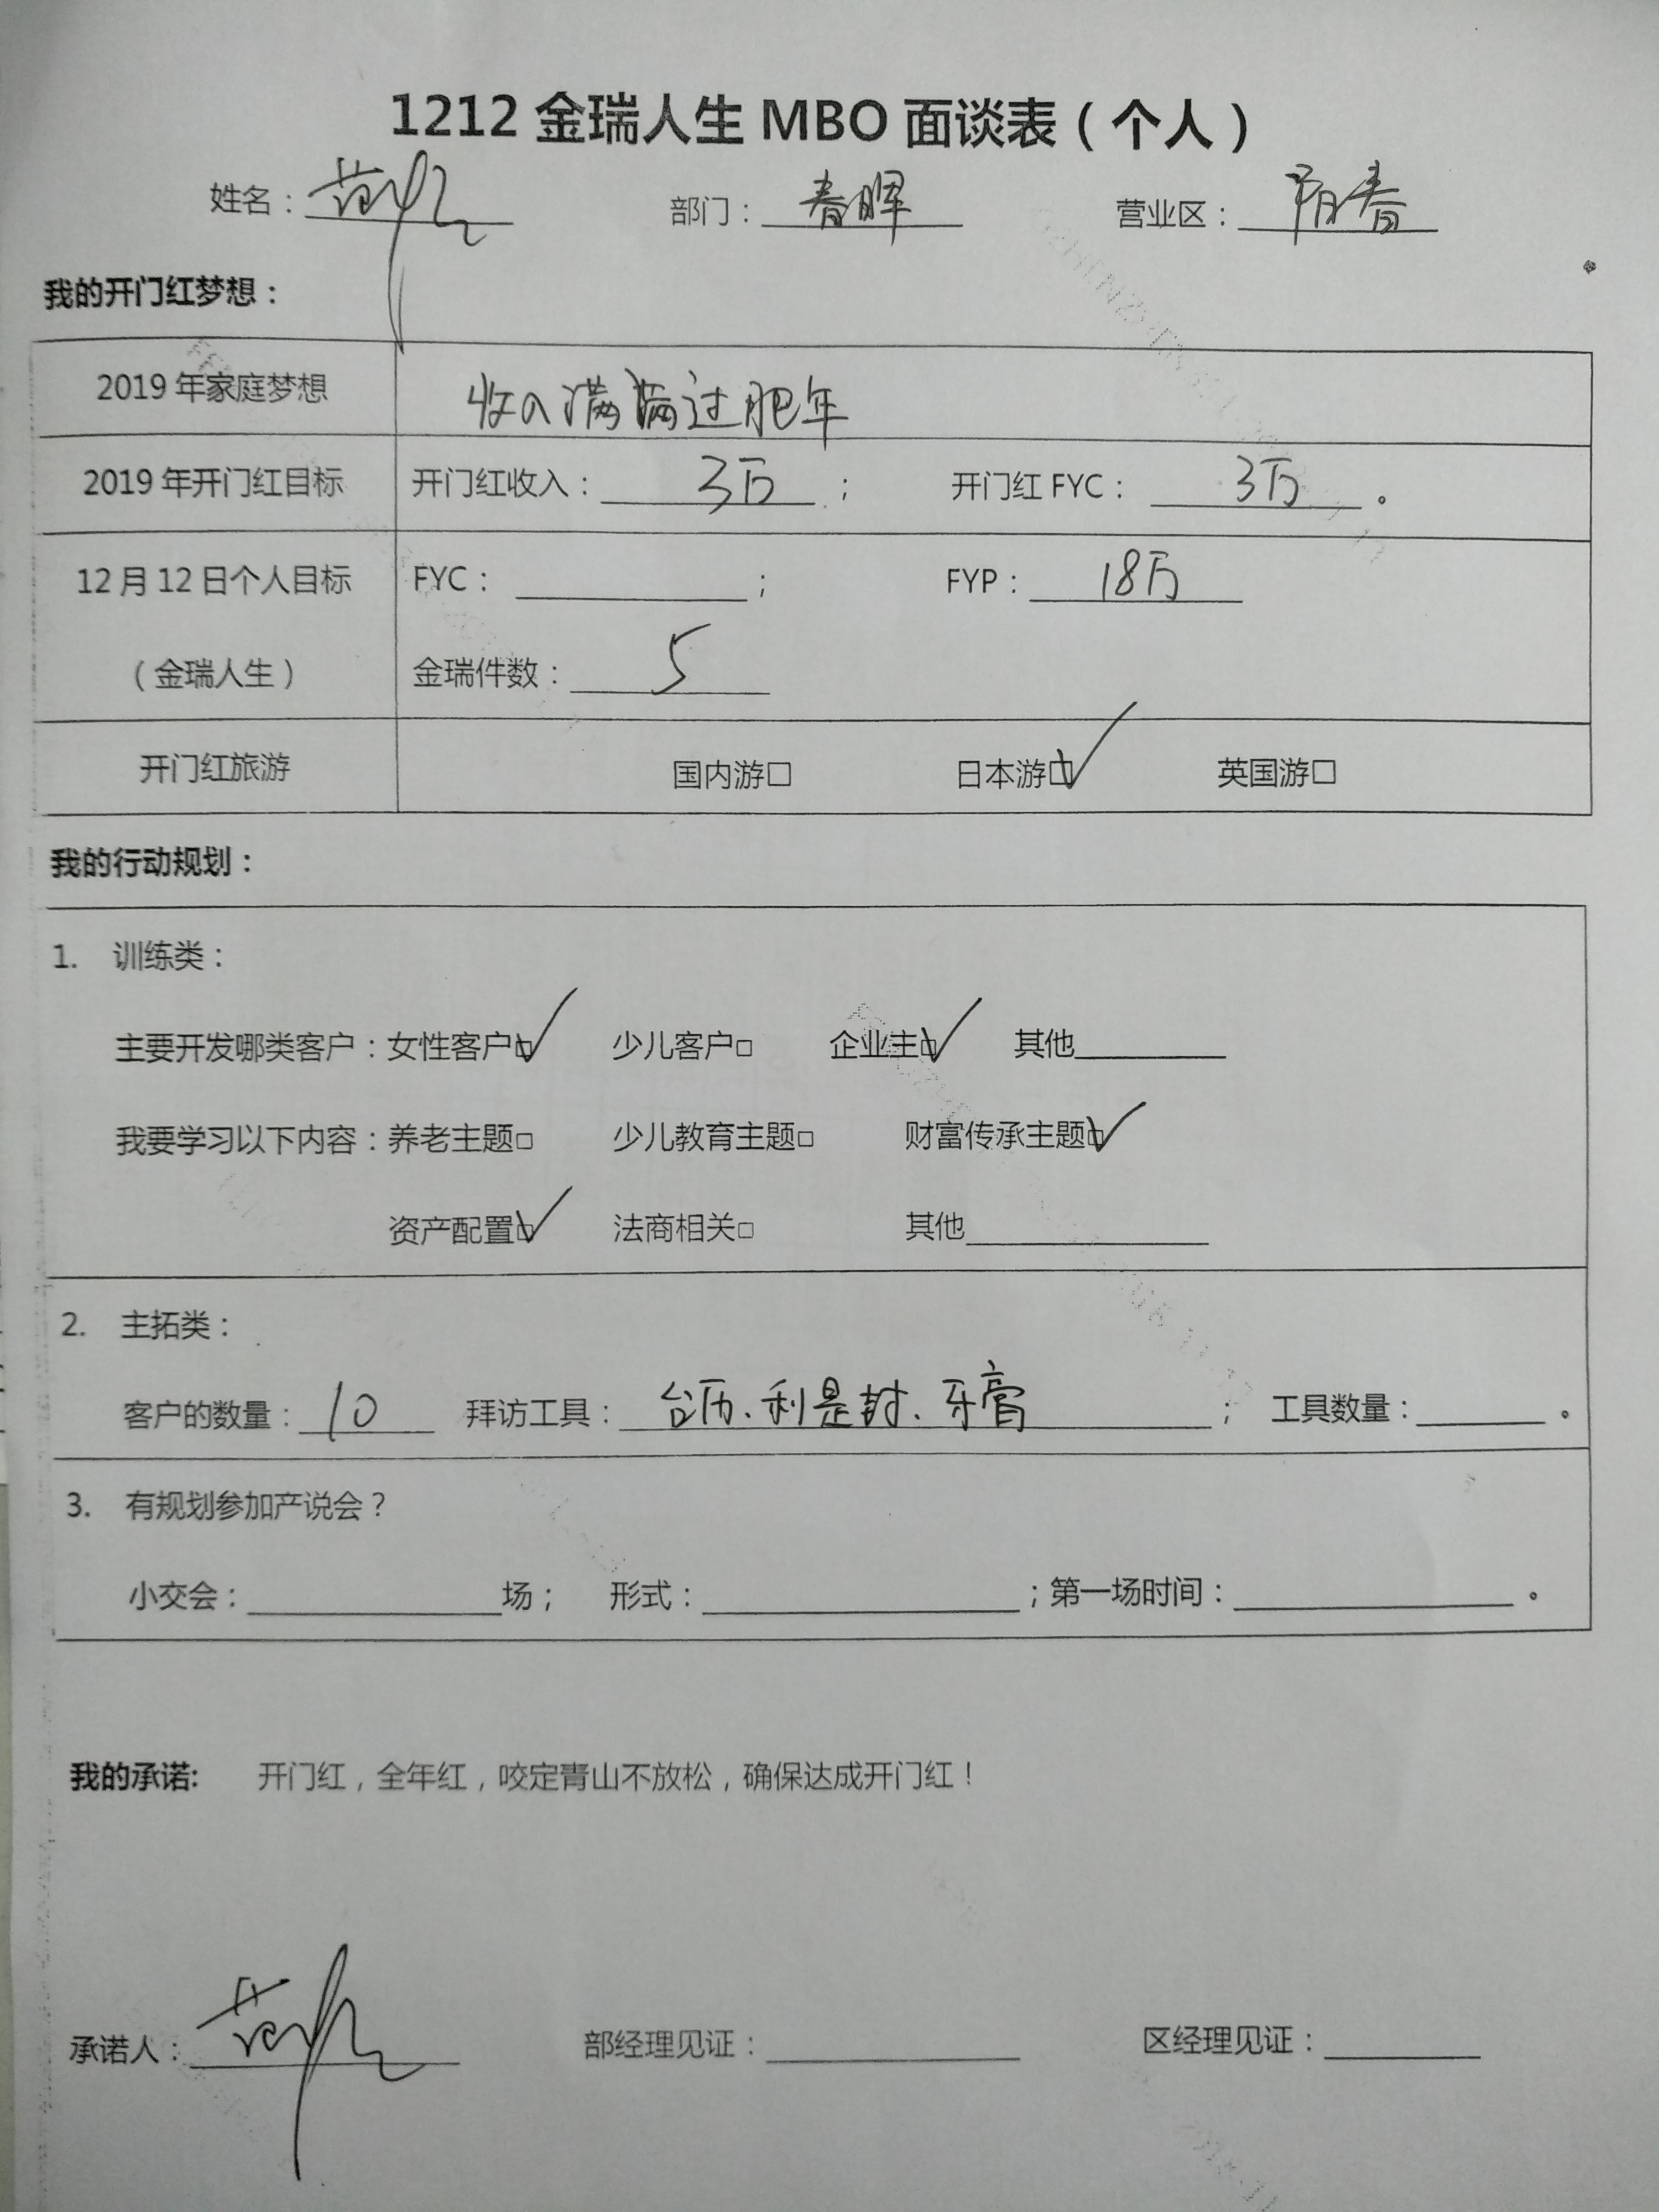 1212 金瑞人生 MBO 面谈表（个人）
姓名： 部门：春晖 营业区：阳春
我的开门红梦想：
2019 年家庭梦想 收入满满过肥年
2019 年开门红目标 开门红收入：3万； 开门红 FYC：3万。
12 月 12 日个人目标 FYC：； FYP：18万
（金瑞人生） 金瑞件数：5
开门红旅游 国内游□ 日本游☑ 英国游□
我的行动规划：
1. 训练类：
主要开发哪类客户：女性客户☑ 少儿客户□ 企业主☑ 其他
我要学习以下内容：养老主题□ 少儿教育主题□ 财富传承主题☑
资产配置☑ 法商相关□ 其他
2. 主拓类：
客户的数量：10 拜访工具：台历、利是封、牙膏； 工具数量：。
3. 有规划参加产说会？
小交会：场； 形式：；第一场时间：。
我的承诺: 开门红，全年红，咬定青山不放松，确保达成开门红！
承诺人： 部经理见证： 区经理见证：